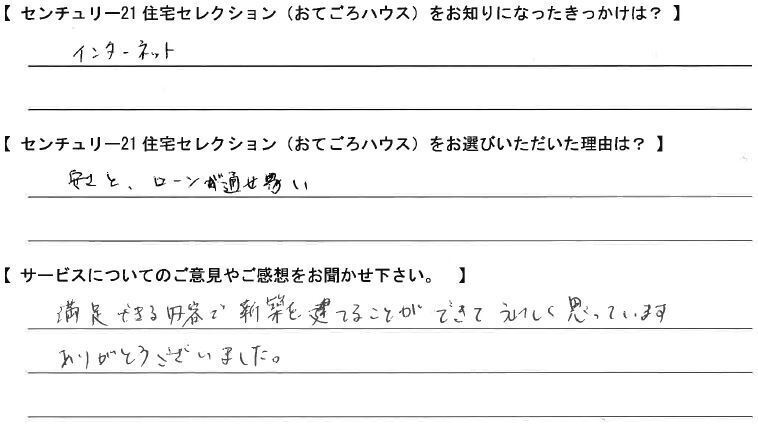 【 センチュリー21 住宅セレクション（おてごろハウス）をお知りになったきっかけは？ 】
インターネット
【 センチュリー21 住宅セレクション（おてごろハウス）をお選びいただいた理由は？ 】
安さと、ローンが通せ易い
【 サービスについてのご意見やご感想をお聞かせ下さい。 】
満足できる内容で新築を建てることができてうれしく思っています
ありがとうございました。